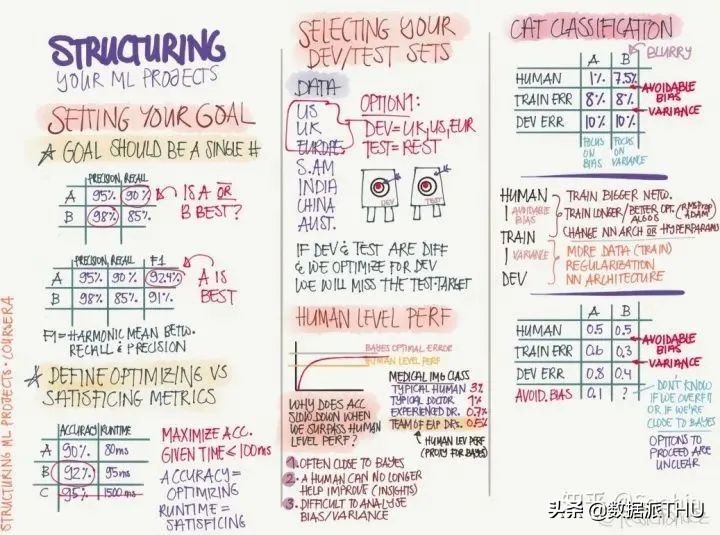 STRUCTURING
YOUR ML PROJECTS
SETTING YOUR GOAL
GOAL SHOULD BE A SINGLE #
PRECISION, RECALL
A 95% 90%
B 98% 85%
IS A OR
B BEST?
PRECISION, RECALL F1
A 95% 90% 92.4%
B 98% 85% 91%
A IS
BEST
F1 = HARMONIC MEAN BETW.
RECALL & PRECISION
DEFINE OPTIMIZING VS
SATISFICING METRICS
ACCURACY RUNTIME
A 90% 80ms
B 92% 95ms
C 95% 1500 ms
MAXIMIZE ACC.
GIVEN TIME ≤ 100ms
ACCURACY =
OPTIMIZING
RUNTIME =
SATISFICING
STRUCTURING ML PROJECTS · COURSERA
SELECTING YOUR
DEV/TEST SETS
DATA
US
UK
EUROPE
S.AM
INDIA
CHINA
AUST.
OPTION 1:
DEV = UK, US, EUR
TEST = REST
DEV
TEST
IF DEV & TEST ARE DIFF
& WE OPTIMIZE FOR DEV
WE WILL MISS THE TEST-TARGET
HUMAN LEVEL PERF
BAYES OPTIMAL ERROR
HUMAN LEVEL PERF
WHY DOES ACC
SLOW DOWN WHEN
WE SURPASS HUMAN
LEVEL PERF?
MEDICAL IMG CLASS
TYPICAL HUMAN 3%
TYPICAL DOCTOR 1%
EXPERIENCED DR. 0.7%
TEAM OF EXP DRS. 0.5%
HUMAN LEV PERF
(PROXY FOR BAYES)
1. OFTEN CLOSE TO BAYES
2. A HUMAN CAN NO LONGER
HELP IMPROVE (INSIGHTS)
3. DIFFICULT TO ANALYSE
BIAS/VARIANCE
CAT CLASSIFICATION
A B
BLURRY
HUMAN 1% 7.5%
TRAIN ERR 8% 8%
DEV ERR 10% 10%
AVOIDABLE
BIAS
VARIANCE
FOCUS
ON
BIAS
FOCUS
ON
VARIANCE
HUMAN
AVOIDABLE
BIAS
TRAIN
VARIANCE
DEV
TRAIN BIGGER NETW.
TRAIN LONGER/BETTER OPT. ALGOS (RMSprop ADAM)
CHANGE NN ARCH OR HYPERPARAMS
MORE DATA (TRAIN)
REGULARIZATION
NN ARCHITECTURE
A B
HUMAN 0.5 0.5
TRAIN ERR 0.6 0.3
DEV ERR 0.8 0.4
AVOID. BIAS 0.1 ?
AVOIDABLE
BIAS
VARIANCE
DON'T KNOW
IF WE OVERFIT
OR IF WE'RE
CLOSE TO BAYES
OPTIONS TO
PROCEED ARE
UNCLEAR
头条 @数据派THU